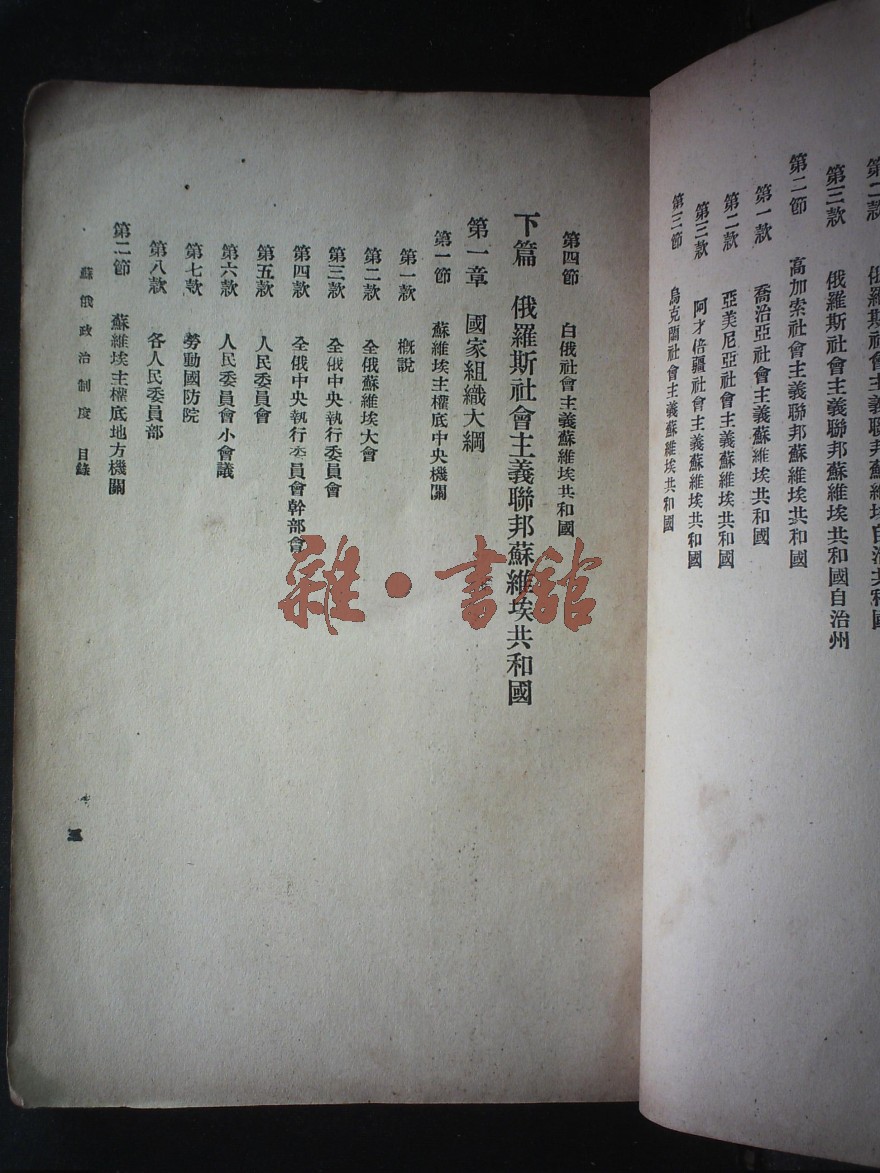 第二款　俄羅斯社會主義聯邦蘇維埃自治共和國
第三款　俄羅斯社會主義聯邦蘇維埃共和國自治州
第二節　高加索社會主義聯邦蘇維埃共和國
第一款　喬治亞社會主義蘇維埃共和國
第二款　亞美尼亞社會主義蘇維埃共和國
第三款　阿才倍疆社會主義蘇維埃共和國
第三節　烏克蘭社會主義蘇維埃共和國
第四節　白俄社會主義蘇維埃共和國
下篇　俄羅斯社會主義聯邦蘇維埃共和國
第一章　國家組織大綱
第一節　蘇維埃主權底中央機關
第一款　概說
第二款　全俄蘇維埃大會
第三款　全俄中央執行委員會
第四款　全俄中央執行委員會幹部會
第五款　人民委員會
第六款　人民委員會小會議
第七款　勞動國防院
第八款　各人民委員部
第二節　蘇維埃主權底地方機關
蘇俄政治制度　目錄
三
雜·書館